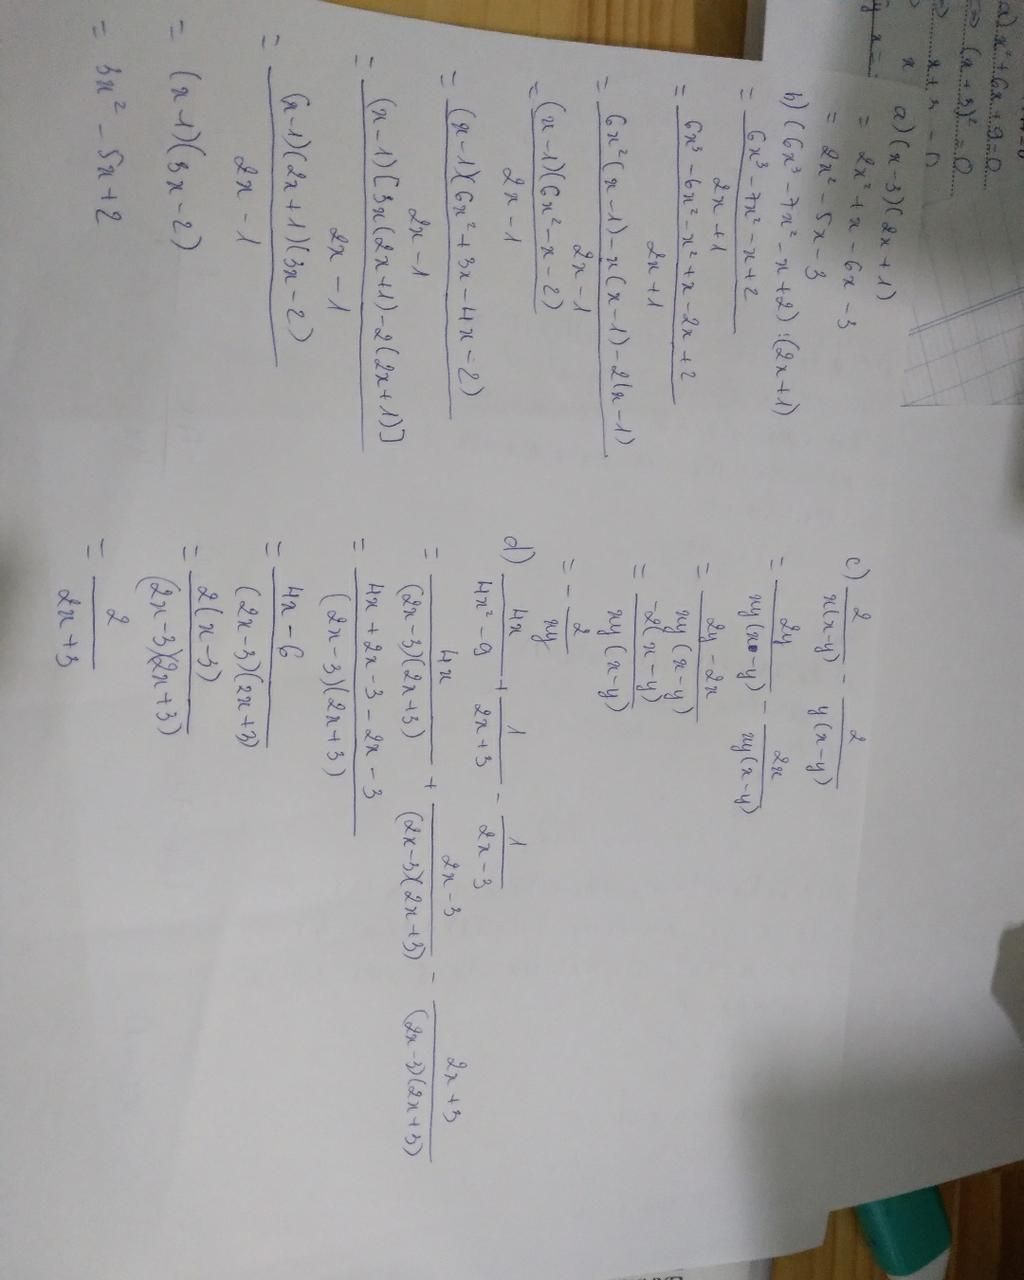 a) x² + 6x + 9 = 0
=> (x + 3)² = 0
a) (x - 3)(2x + 1)
= 2x² + x - 6x - 3
= 2x² - 5x - 3
b) (6x³ - 7x² - x + 2) : (2x + 1)
= (6x³ - 7x² - x + 2) / (2x + 1)
= (6x³ - 6x² - x² + x - 2x + 2) / (2x + 1)
= (6x²(x - 1) - x(x - 1) - 2(x - 1)) / (2x - 1)
= ((x - 1)(6x² - x - 2)) / (2x - 1)
= ((x - 1)(6x² + 3x - 4x - 2)) / (2x - 1)
= ((x - 1)[3x(2x + 1) - 2(2x + 1)]) / (2x - 1)
= ((x - 1)(2x + 1)(3x - 2)) / (2x - 1)
= (x - 1)(3x - 2)
= 3x² - 5x + 2
c) 2 / (x(x - y)) - 2 / (y(x - y))
= 2y / (xy(x - y)) - 2x / (xy(x - y))
= (2y - 2x) / (xy(x - y))
= (-2(x - y)) / (xy(x - y))
= - 2 / (xy)
d) 4x / (4x² - 9) + 1 / (2x + 3) - 1 / (2x - 3)
= 4x / ((2x - 3)(2x + 3)) + (2x - 3) / ((2x - 3)(2x + 3)) - (2x + 3) / ((2x - 3)(2x + 3))
= (4x + 2x - 3 - 2x - 3) / ((2x - 3)(2x + 3))
= (4x - 6) / ((2x - 3)(2x + 3))
= (2(x - 3)) / ((2x - 3)(2x + 3))
= 2 / (2x + 3)